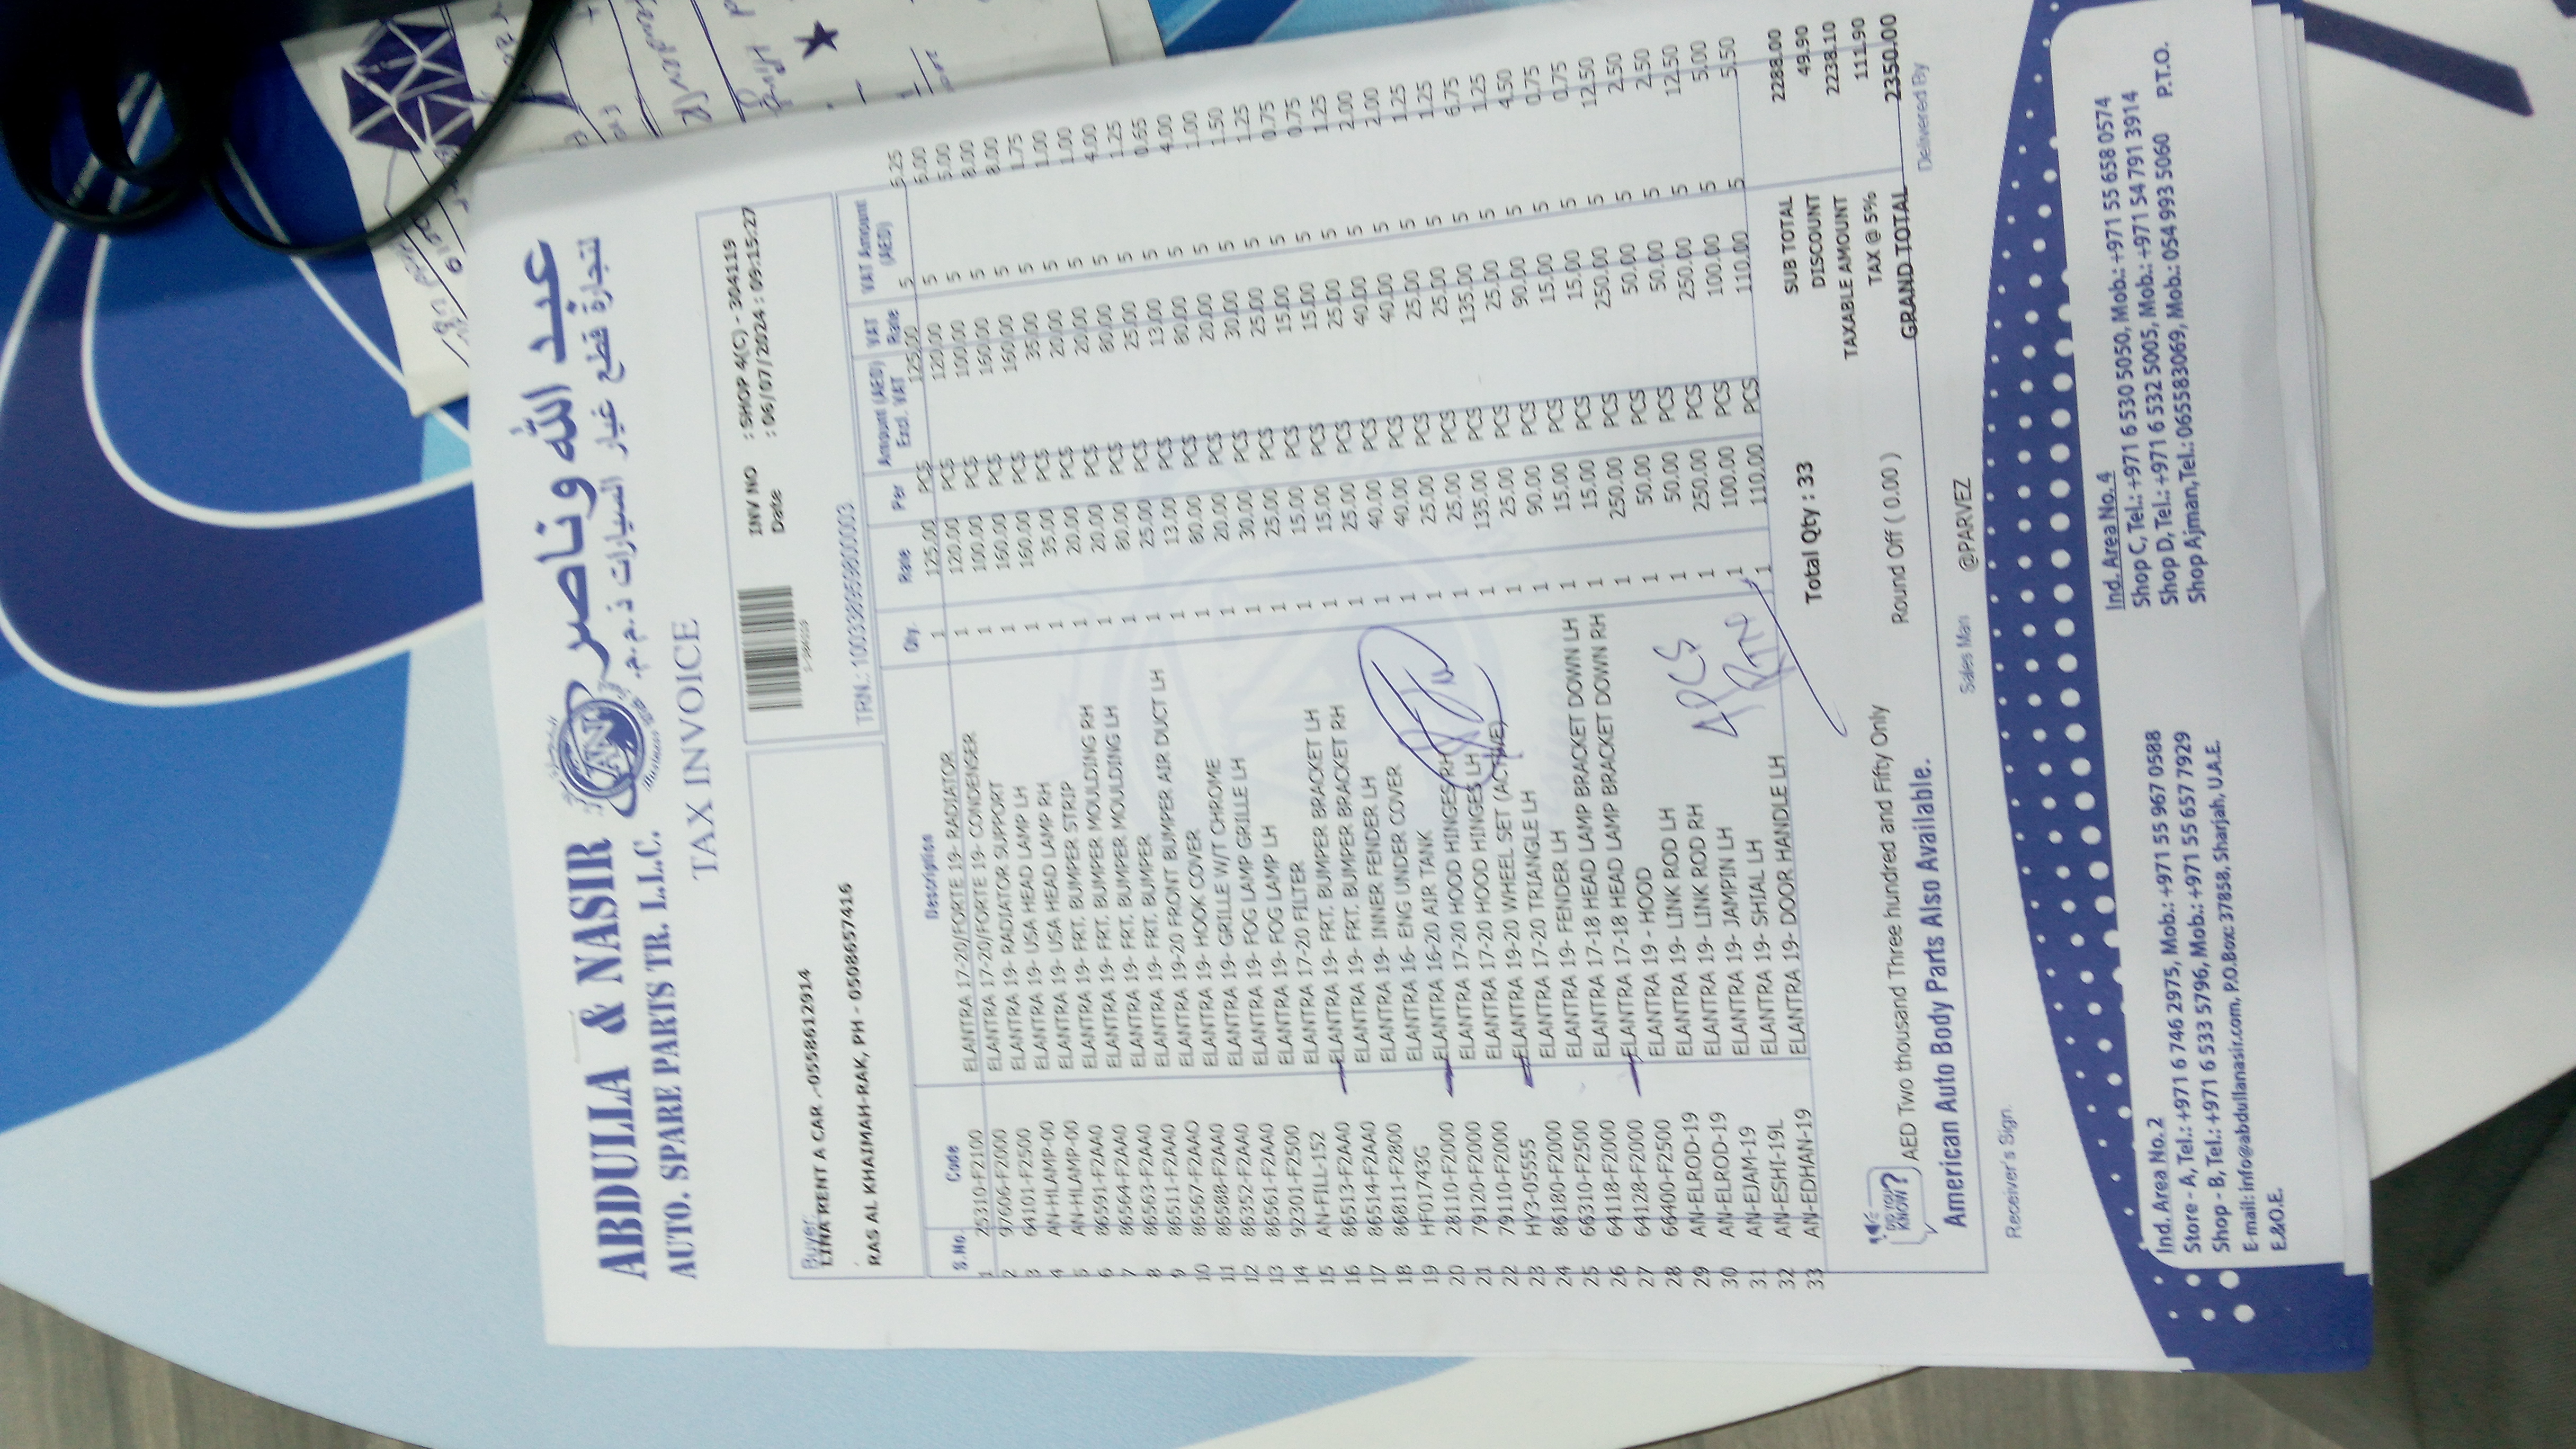 ABDULLA & NASIR
AUTO. SPARE PARTS TR. L.L.C.
عبد الله وناصر
لتجارة قطع غيار السيارات ذ.م.م.
AN
Business
TAX INVOICE
Buyer:
LINA RENT A CAR -0558612914
RAS AL KHAIMAH-RAK, PH - 0508657416
INV NO : SHOP 4(C) - 304119
Date : 06/07/2024 : 09:15:27
TRN.: 100338959800003
S.No. Code Description Qty. Rate Per Amount (AED) Excl. VAT VAT Rate VAT Amount (AED)
1 25310-F2100 ELANTRA 17-20/FORTE 19- RADIATOR 1 125.00 PCS 125.00 5 6.25
2 97606-F2000 ELANTRA 17-20/FORTE 19- CONDENSER 1 120.00 PCS 120.00 5 6.00
3 64101-F2500 ELANTRA 19- RADIATOR SUPPORT 1 100.00 PCS 100.00 5 5.00
4 AN-HLAMP-00 ELANTRA 19- USA HEAD LAMP LH 1 160.00 PCS 160.00 5 8.00
5 AN-HLAMP-00 ELANTRA 19- USA HEAD LAMP RH 1 160.00 PCS 160.00 5 8.00
6 86591-F2AA0 ELANTRA 19- FRT. BUMPER STRIP 1 35.00 PCS 35.00 5 1.75
7 86564-F2AA0 ELANTRA 19- FRT. BUMPER MOULDING RH 1 20.00 PCS 20.00 5 1.00
8 86563-F2AA0 ELANTRA 19- FRT. BUMPER MOULDING LH 1 20.00 PCS 20.00 5 1.00
9 86511-F2AA0 ELANTRA 19- FRT. BUMPER 1 80.00 PCS 80.00 5 4.00
10 86567-F2AAO ELANTRA 19-20 FRONT BUMPER AIR DUCT LH 1 25.00 PCS 25.00 5 1.25
11 86588-F2AA0 ELANTRA 19- HOOK COVER 1 13.00 PCS 13.00 5 0.65
12 86352-F2AA0 ELANTRA 19- GRILLE W/T CHROME 1 80.00 PCS 80.00 5 4.00
13 86561-F2AA0 ELANTRA 19- FOG LAMP GRILLE LH 1 20.00 PCS 20.00 5 1.00
14 92301-F2500 ELANTRA 19- FOG LAMP LH 1 30.00 PCS 30.00 5 1.50
15 AN-FILL-152 ELANTRA 17-20 FILTER 1 25.00 PCS 25.00 5 1.25
16 86513-F2AA0 ELANTRA 19- FRT. BUMPER BRACKET LH 1 15.00 PCS 15.00 5 0.75
17 86514-F2AA0 ELANTRA 19- FRT. BUMPER BRACKET RH 1 15.00 PCS 15.00 5 0.75
18 86811-F2800 ELANTRA 19- INNER FENDER LH 1 25.00 PCS 25.00 5 1.25
19 HF01743G ELANTRA 16- ENG UNDER COVER 1 40.00 PCS 40.00 5 2.00
20 28110-F2000 ELANTRA 16-20 AIR TANK 1 40.00 PCS 40.00 5 2.00
21 79120-F2000 ELANTRA 17-20 HOOD HINGES RH 1 25.00 PCS 25.00 5 1.25
22 79110-F2000 ELANTRA 17-20 HOOD HINGES LH 1 25.00 PCS 25.00 5 1.25
23 HY3-05555 ELANTRA 19-20 WHEEL SET (ACTIVE) 1 135.00 PCS 135.00 5 6.75
24 86180-F2000 ELANTRA 17-20 TRIANGLE LH 1 25.00 PCS 25.00 5 1.25
25 66310-F2500 ELANTRA 19- FENDER LH 1 90.00 PCS 90.00 5 4.50
26 64118-F2000 ELANTRA 17-18 HEAD LAMP BRACKET DOWN LH 1 15.00 PCS 15.00 5 0.75
27 64128-F2000 ELANTRA 17-18 HEAD LAMP BRACKET DOWN RH 1 15.00 PCS 15.00 5 0.75
28 66400-F2500 ELANTRA 19 - HOOD 1 250.00 PCS 250.00 5 12.50
29 AN-ELROD-19 ELANTRA 19- LINK ROD LH 1 50.00 PCS 50.00 5 2.50
30 AN-ELROD-19 ELANTRA 19- LINK ROD RH 1 50.00 PCS 50.00 5 2.50
31 AN-EJAM-19 ELANTRA 19- JAMPIN LH 1 250.00 PCS 250.00 5 12.50
32 AN-ESHI-19L ELANTRA 19- SHIAL LH 1 100.00 PCS 100.00 5 5.00
33 AN-EDHAN-19 ELANTRA 19- DOOR HANDLE LH 1 110.00 PCS 110.00 5 5.50
4 PCS
RTN
Total Qty : 33
SUB TOTAL 2288.00
DISCOUNT 49.90
TAXABLE AMOUNT 2238.10
TAX @ 5% 111.90
GRAND TOTAL 2350.00
DID YOU KNOW?
AED Two thousand Three hundred and Fifty Only
Round Off ( 0.00 )
American Auto Body Parts Also Available.
Receiver's Sign.
Sales Man @PARVEZ
Delivered By
Ind. Area No. 2
Store - A, Tel.: +971 6 746 2975, Mob.: +971 55 967 0588
Shop - B, Tel.: +971 6 533 5796, Mob.: +971 55 657 7929
E-mail: info@abdullanasir.com, P.O.Box: 37858, Sharjah, U.A.E.
E.&O.E.
Ind. Area No. 4
Shop C, Tel.: +971 6 530 5050, Mob.: +971 55 658 0574
Shop D, Tel.: +971 6 532 5005, Mob.: +971 54 791 3914
Shop Ajman, Tel.: 065583069, Mob.: 054 993 5060
P.T.O.